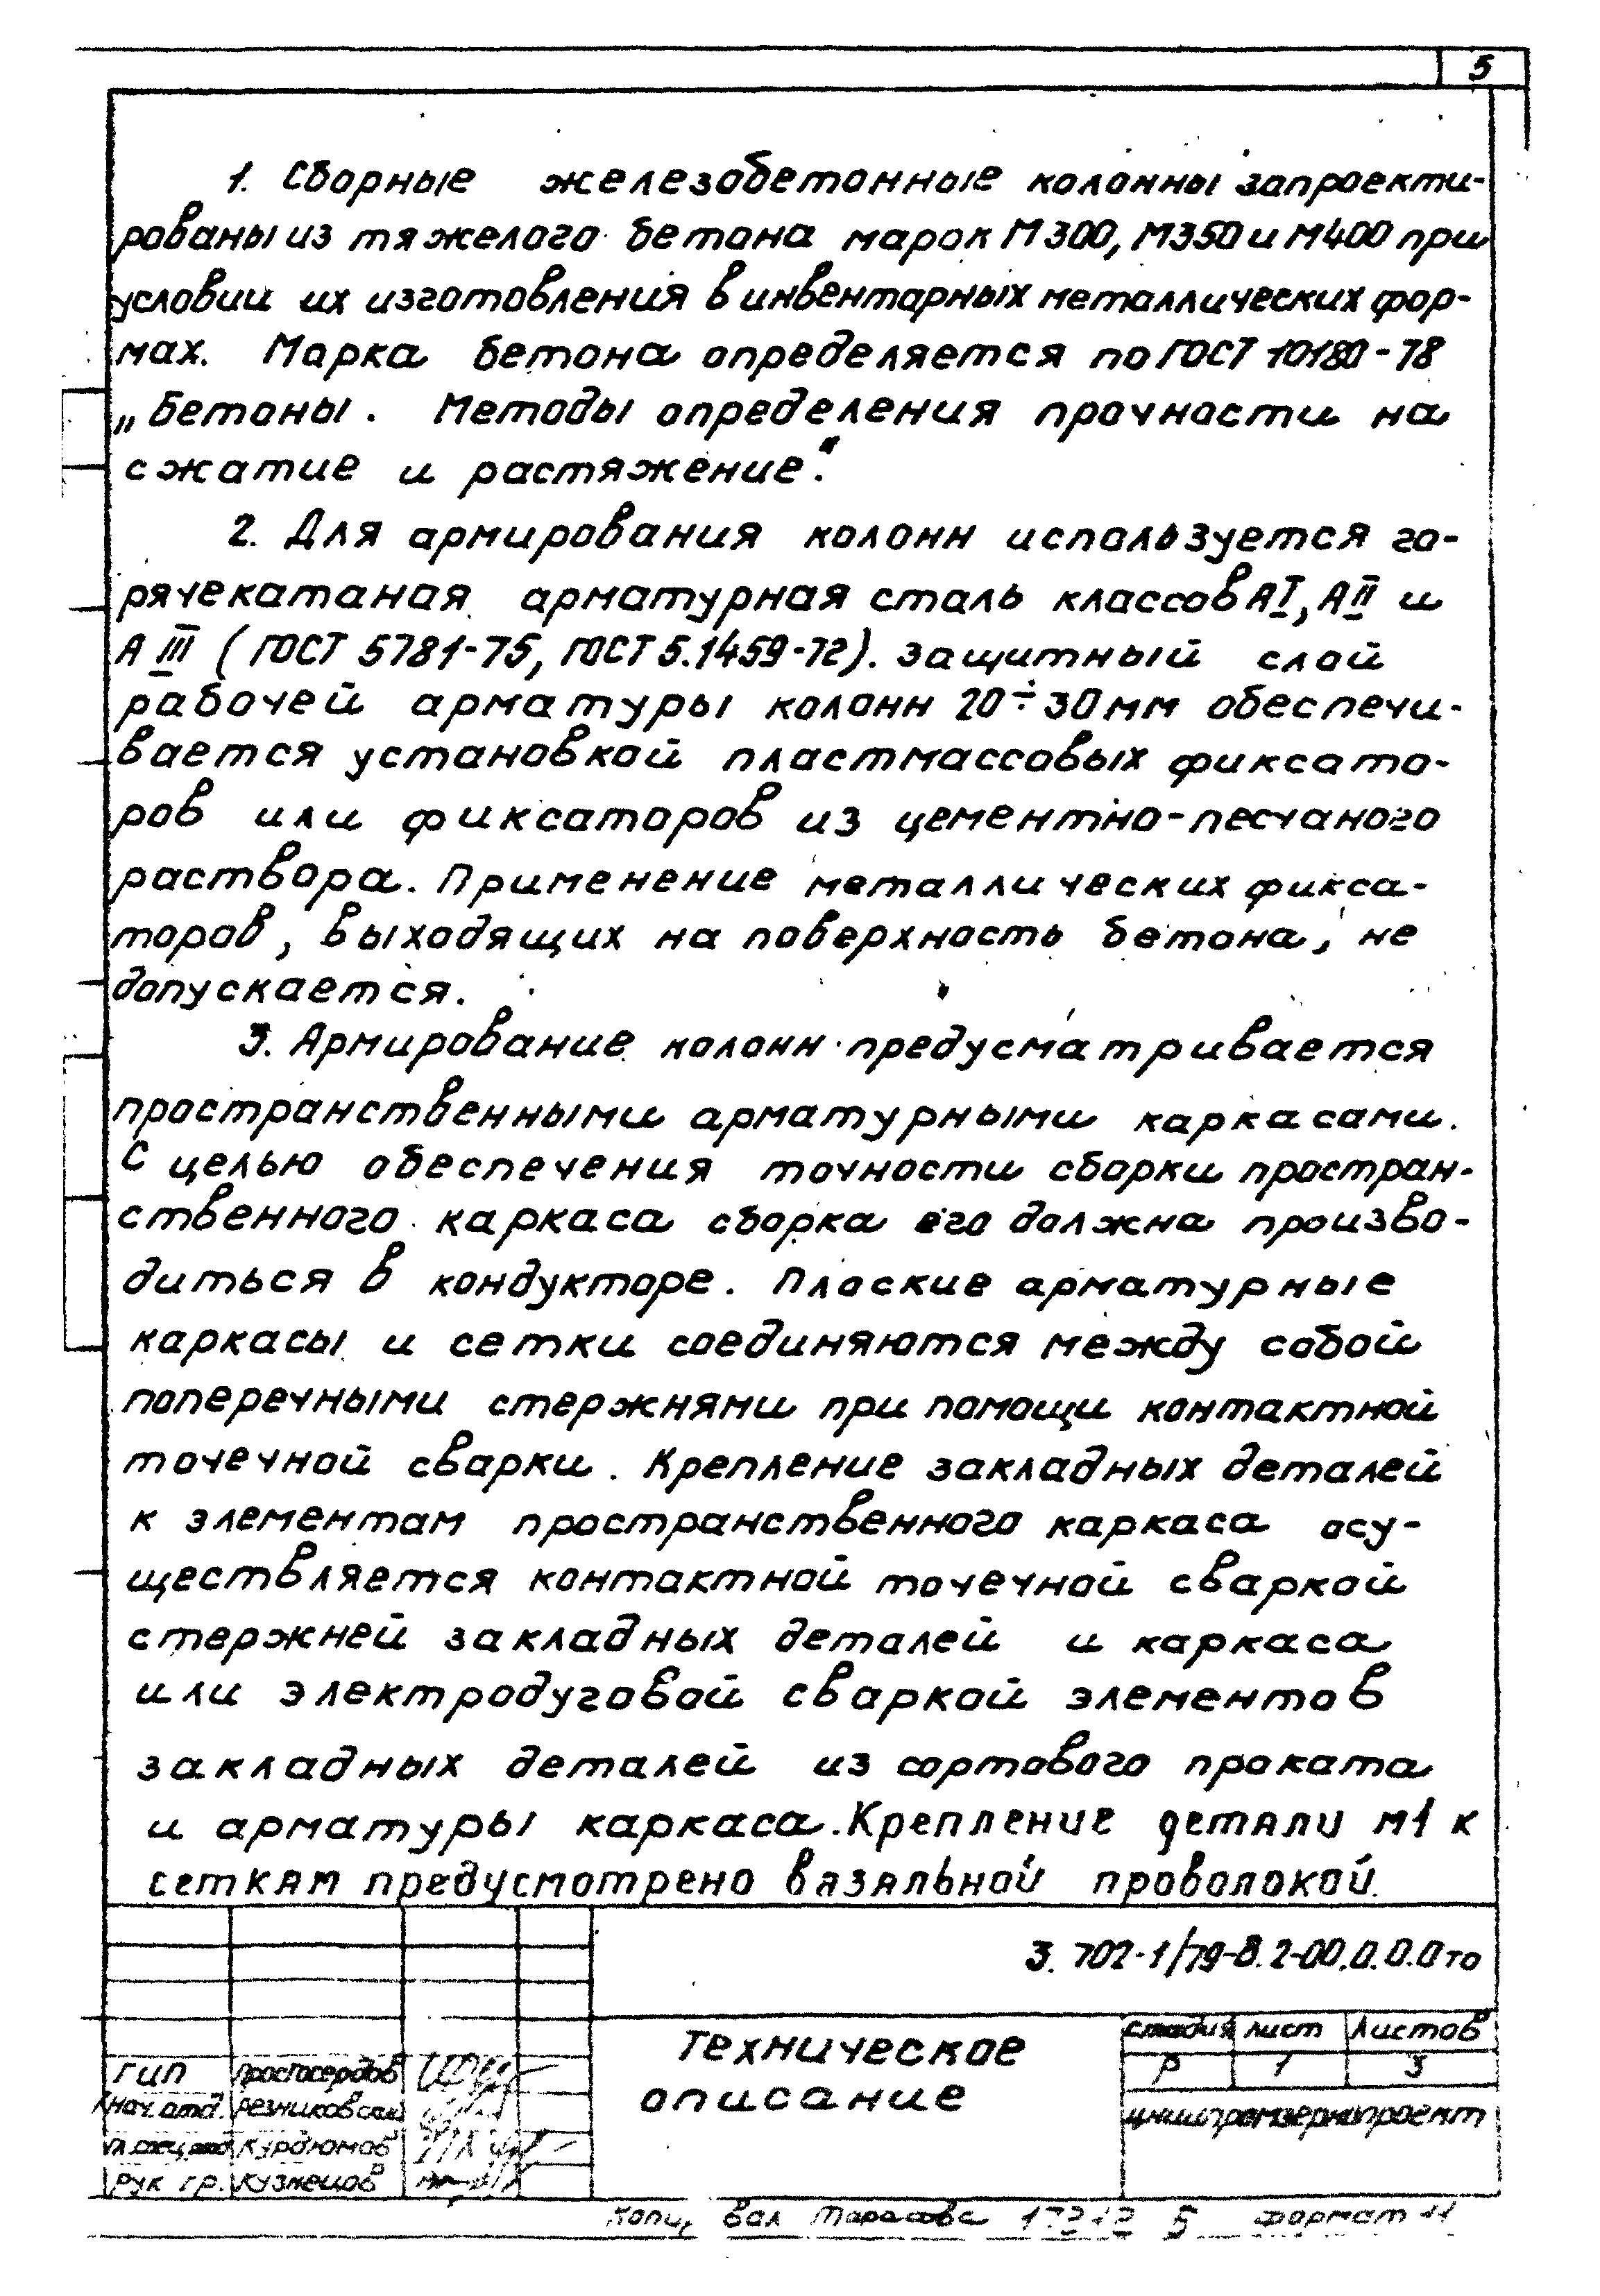 5
1. Сборные железобетонные колонны запроекти-
рованы из тяжелого бетона марок М300, М350 и М400 при
условии их изготовления в инвентарных металлических фор-
мах. Марка бетона определяется по ГОСТ 10180-78
„Бетоны. Методы определения прочности на
сжатие и растяжение“.
2. Для армирования колонн используется го-
рячекатаная арматурная сталь классов АI, АII и
АIII (ГОСТ 5781-75, ГОСТ 5.1459-72). Защитный слой
рабочей арматуры колонн 20÷30 мм обеспечи-
вается установкой пластмассовых фиксато-
ров или фиксаторов из цементно-песчаного
раствора. Применение металлических фикса-
торов, выходящих на поверхность бетона, не
допускается.
3. Армирование колонн предусматривается
пространственными арматурными каркасами.
С целью обеспечения точности сборки простран-
ственного каркаса сборка его должна произво-
диться в кондукторе. Плоские арматурные
каркасы и сетки соединяются между собой
поперечными стержнями при помощи контактной
точечной сварки. Крепление закладных деталей
к элементам пространственного каркаса осу-
ществляется контактной точечной сваркой
стержней закладных деталей и каркаса
или электродуговой сваркой элементов
закладных деталей из сортового проката
и арматуры каркаса. Крепление детали М1 к
сеткам предусмотрено вязальной проволокой.
3.702-1/79-В.2-00.0.0.0 ТО
Техническое
описание
Стадия Лист Листов
Р 1 3
ЦНИИпромзернопроект
ГИП Простосердов
Нач. отд. Резниковский
Гл. спец. отд. Курдюмов
Рук. гр. Кузнецов
Копир. Вал Тарасова 5 Формат 11